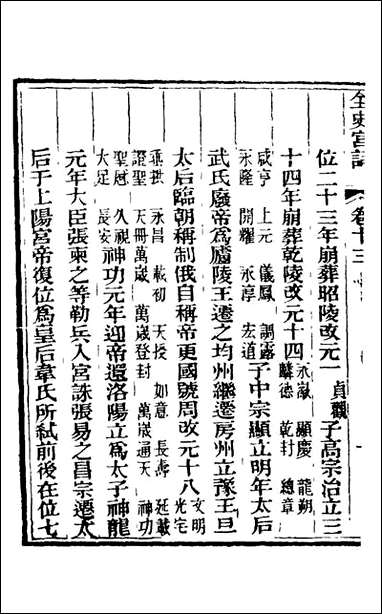 全史宮詞
卷十三
位二十三年崩葬昭陵改元一貞觀子高宗治立三
十四年崩葬乾陵改元十四永徽 顯慶 龍朔
麟德 乾封 總章
咸亨 上元 儀鳳 調露
永隆 開耀 永淳 宏道子中宗顯立明年太后
武氏廢帝爲廬陵王遷之均州繼遷房州立豫王旦
太后臨朝稱制俄自稱帝更國號周改元十八文明
光宅
垂拱 永昌 載初 天授 如意 長壽 延載
證聖 天冊萬歲 萬歲登封 萬歲通天 神功
聖厯 久視
大足 長安神功元年迎帝還洛陽立爲太子神龍
元年大臣張柬之等勒兵入宮誅張易之昌宗遷太
后于上陽宮帝復位爲皇后韋氏所弒前後在位七